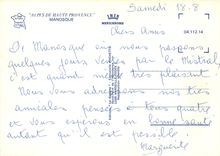 Samedi 18.8
"ALPES DE HAUTE PROVENCE"
MANOSQUE
04.112.14
Chers Amis
De Manosque où nous passons
quelques jours ventés par le Mistral,
c'est quand même très plaisant
Nous vous adressons nos très
amicales pensées à tous quatre
et vous espérons en bonne santé
autant qu'il est possible.
Marguerite